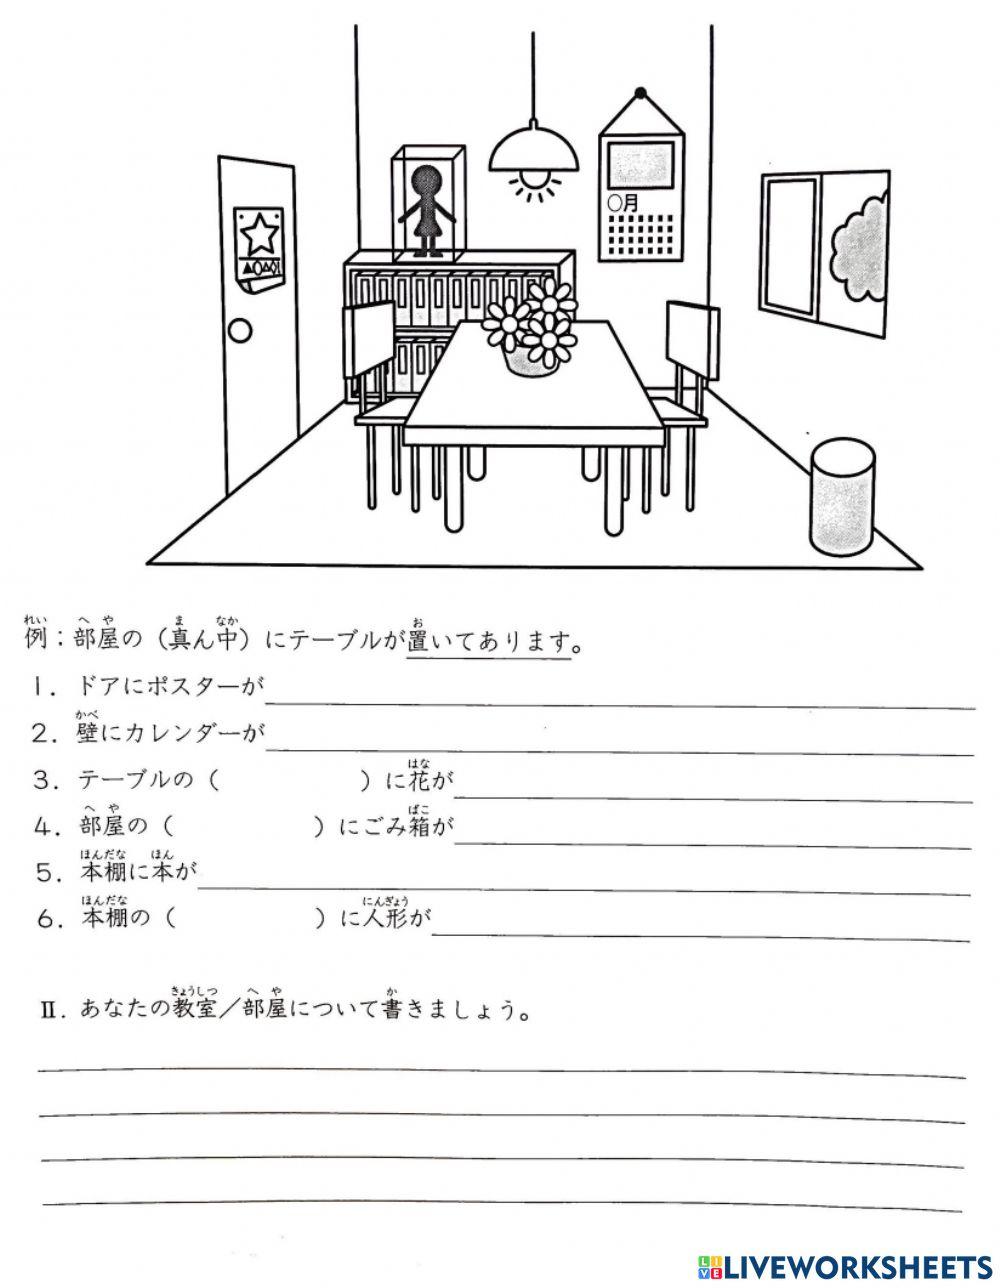 ○月
例：部屋の（真ん中）にテーブルが置いてあります。
1. ドアにポスターが
2. 壁にカレンダーが
3. テーブルの（　　　　）に花が
4. 部屋の（　　　　）にごみ箱が
5. 本棚に本が
6. 本棚の（　　　　）に人形が
Ⅱ. あなたの教室／部屋について書きましょう。
LIVE LIVEWORKSHEETS